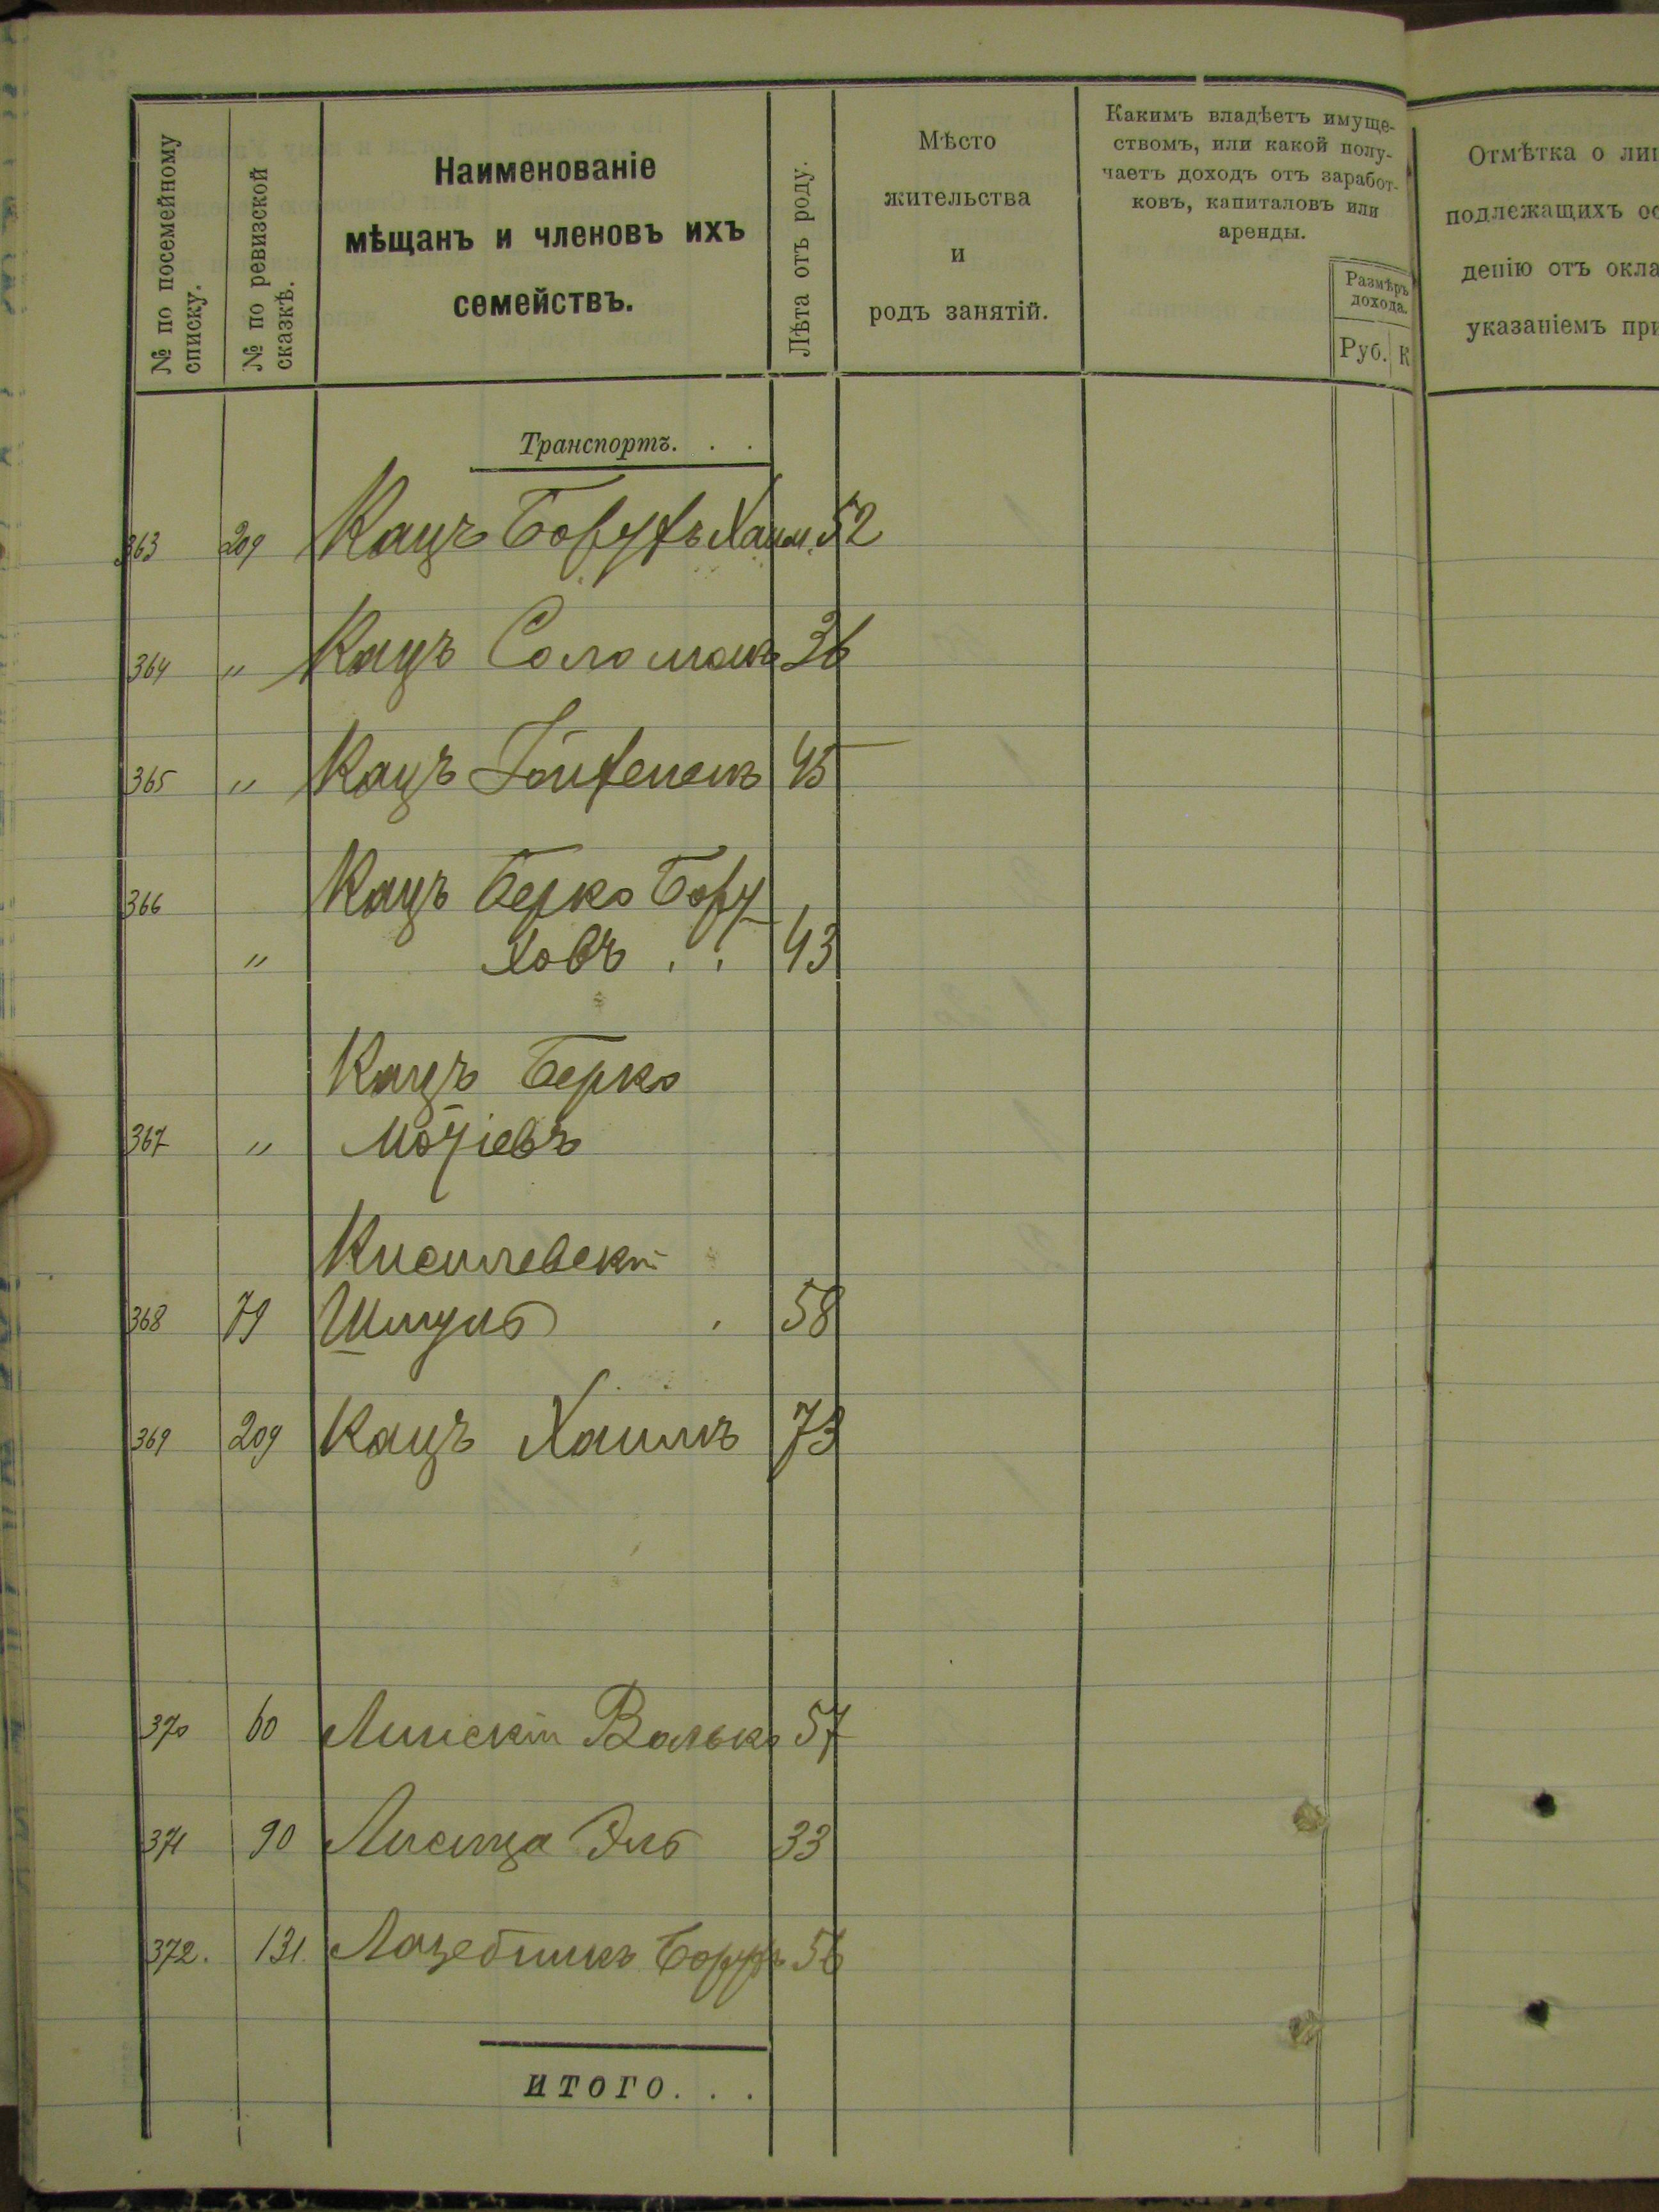 № по посемейному
списку.
№ по ревизской
сказкѣ.
Наименованіе
мѣщанъ и членовъ ихъ
семействъ.
Лѣта отъ роду.
Мѣсто
жительства
и
родъ занятій.
Какимъ владѣетъ имуще-
ствомъ, или какой полу-
чаетъ доходъ отъ заработ-
ковъ, капиталовъ или
аренды.
Размѣръ
дохода.
Руб. К
Отмѣтка о ли
подлежащихъ ос
денію отъ окла
указаніемъ при
Транспортъ. . .
363 209 Кацъ Борухъ Хаим. 52
364 " Кацъ Соломонъ 36
365 " Кацъ 45
366 Кацъ Берко Бору
" ховъ . . 43
Кацъ Берко
367 "
Кисилевскій
368 79 Шмуль . 58
369 209 Кацъ Хаимъ 73
370 60 Линскій Волько 57
371 90 Лисица Эль 33
372. 131. Лазебникъ Борухъ 56
итого. . .